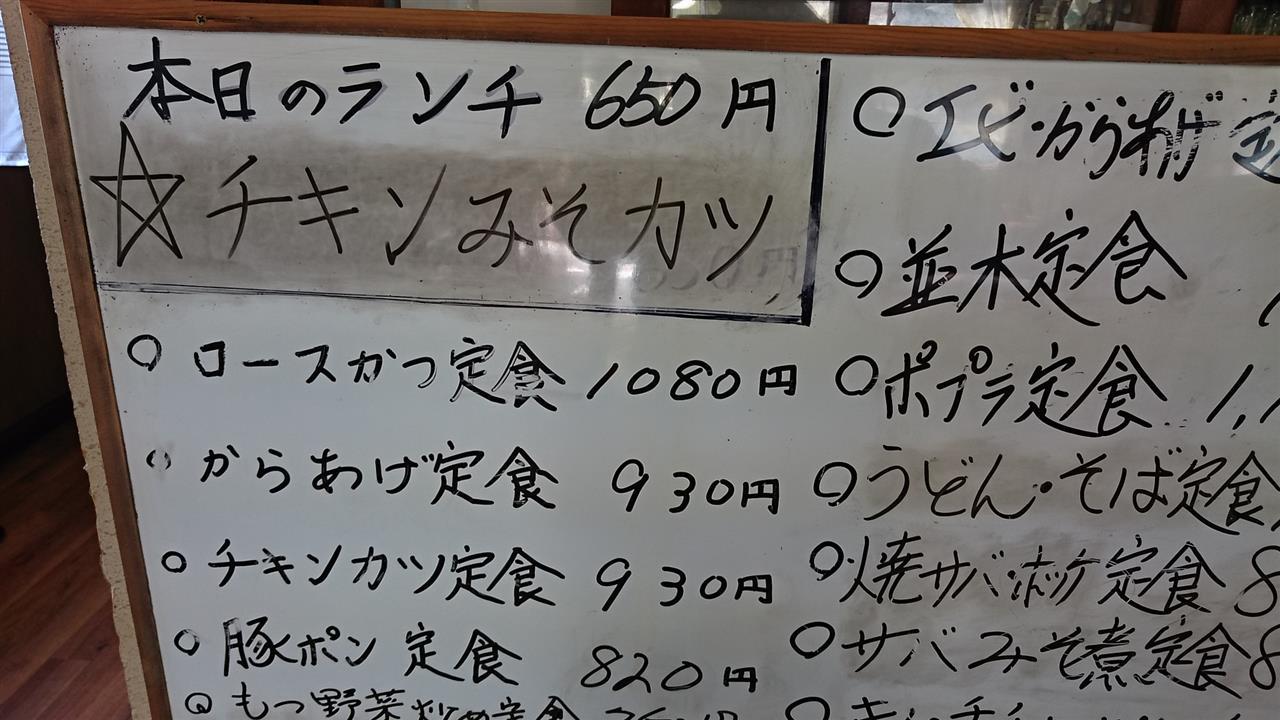 本日のランチ 650円
☆チキンみそカツ
○ ロースかつ定食 1080円
○ からあげ定食 930円
○ チキンカツ定食 930円
○ 豚ポン定食 820円
○ もつ野菜炒め定食
○ エビ・からあげ定
○ 並木定食
○ ポプラ定食 1,
○ うどん・そば定食
○ 焼サバ・ホッケ定食 8
○ サバみそ煮定食 8